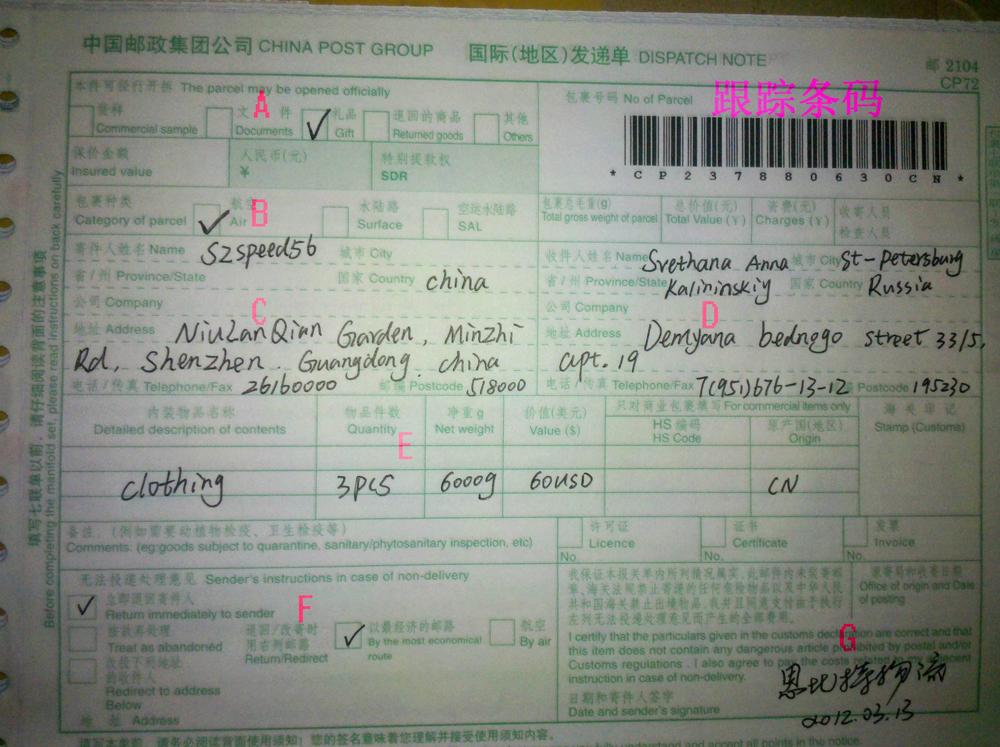 中国邮政集团公司 CHINA POST GROUP 国际(地区)发递单 DISPATCH NOTE
邮 2104
CP72
本件可径行开拆 The parcel may be opened officially
A
Commercial sample
文件 Documents
礼品 Gift
退回的商品 Returned goods
其他 Others
包裹号码 No of Parcel
跟踪条码
* C P 2 3 7 8 8 0 6 3 0 C N *
保价金额 Insured value
人民币(元) ¥
特别提款权 SDR
包裹种类 Category of parcel
航空 Air
B
水陆路 Surface
空运水陆路 SAL
包裹总毛重(g) Total gross weight of parcel
总价值(元) Total Value (¥)
资费(元) Charges (¥)
收寄人员
检查人员
寄件人姓名 Name SZspeed56 城市 City
省/州 Province/State 国家 Country china
公司 Company
C
地址 Address NiuLanQian Garden, Minzhi
Rd, Shenzhen. Guangdong. china
电话/传真 Telephone/Fax 26160000 邮编 Postcode 518000
收件人姓名 Name Svethana Anna 城市 City St-Petersburg
省/州 Province/State Kalininskiy 国家 Country Russia
公司 Company
D
地址 Address Demyana bednogo street 33/5,
apt. 19
电话/传真 Telephone/Fax 7(951)676-13-12 Postcode 195230
内装物品名称 Detailed description of contents
物品件数 Quantity
E
净重 g Net weight
价值(美元) Value ($)
只对商业包裹填写 For commercial items only
HS 编码 HS Code
原产国(地区) Origin
海关印记 Stamp (Customs)
clothing 3PCS 6000g 60USD CN
备注:(例如需要动植物检疫、卫生检疫等)
Comments: (eg:goods subject to quarantine, sanitary/phytosanitary inspection, etc)
许可证 Licence No.
证书 Certificate No.
发票 Invoice No.
无法投递处理意见 Sender's instructions in case of non-delivery
立即退回寄件人
Return immediately to sender
F
按放弃处理
Treat as abandonéd
改投下列地址的收件人
Redirect to address Below
退回/改寄时用右列邮路
Return/Redirect
以最经济的邮路
By the most economical route
航空 By air
地址 Address
我保证本报关单内所列情况属实,此邮件内未装寄邮
章、海关法规禁止寄递的任何危险物品以及中华人民
共和国海关禁止出境物品。我并且同意支付由于执行
左列无法投递处理意见而产生的全部费用。
Office of origin and Date of posting
I certify that the particulars given in the customs declaration are correct and that
this item does not contain any dangerous article prohibited by postal and/or
Customs regulations. I also agree to pay the costs
instruction in case of non-delivery.
G
日期和寄件人签字
Date and sender's signature
恩比特物流
2012.03.13
填写七联单以前,请仔细阅读背面的注意事项
Before completing the manifold set, please read instructions on back carefully
您的签名意味着您理解并接受使用须知内容。